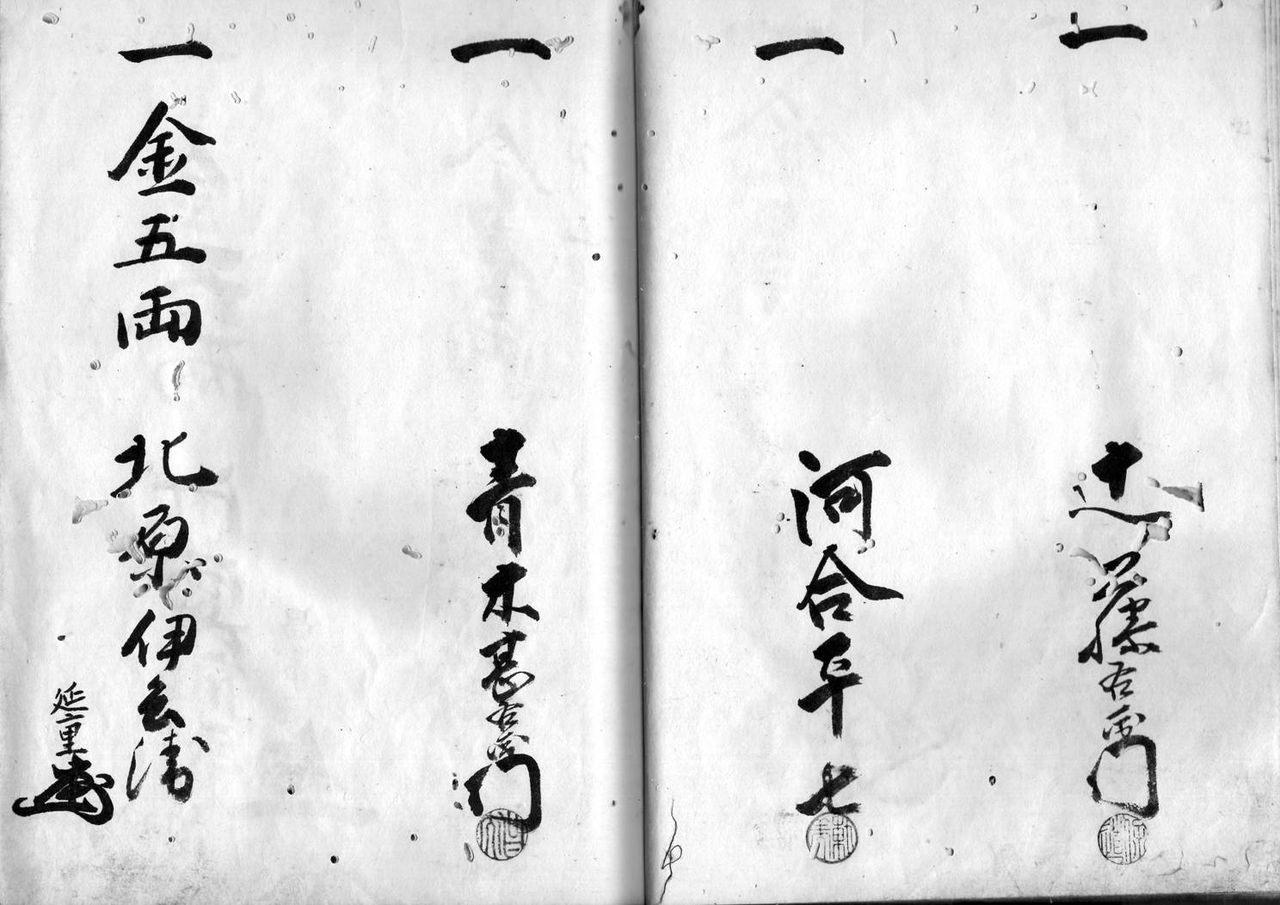 一 辻藤右衛門
一 河合平七
一 青木甚右衛門
一 金五両 北原伊兵衛
延重